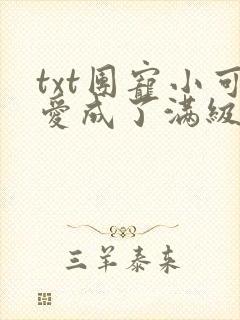 txt团寵小可
愛成了滿級
三羊泰来